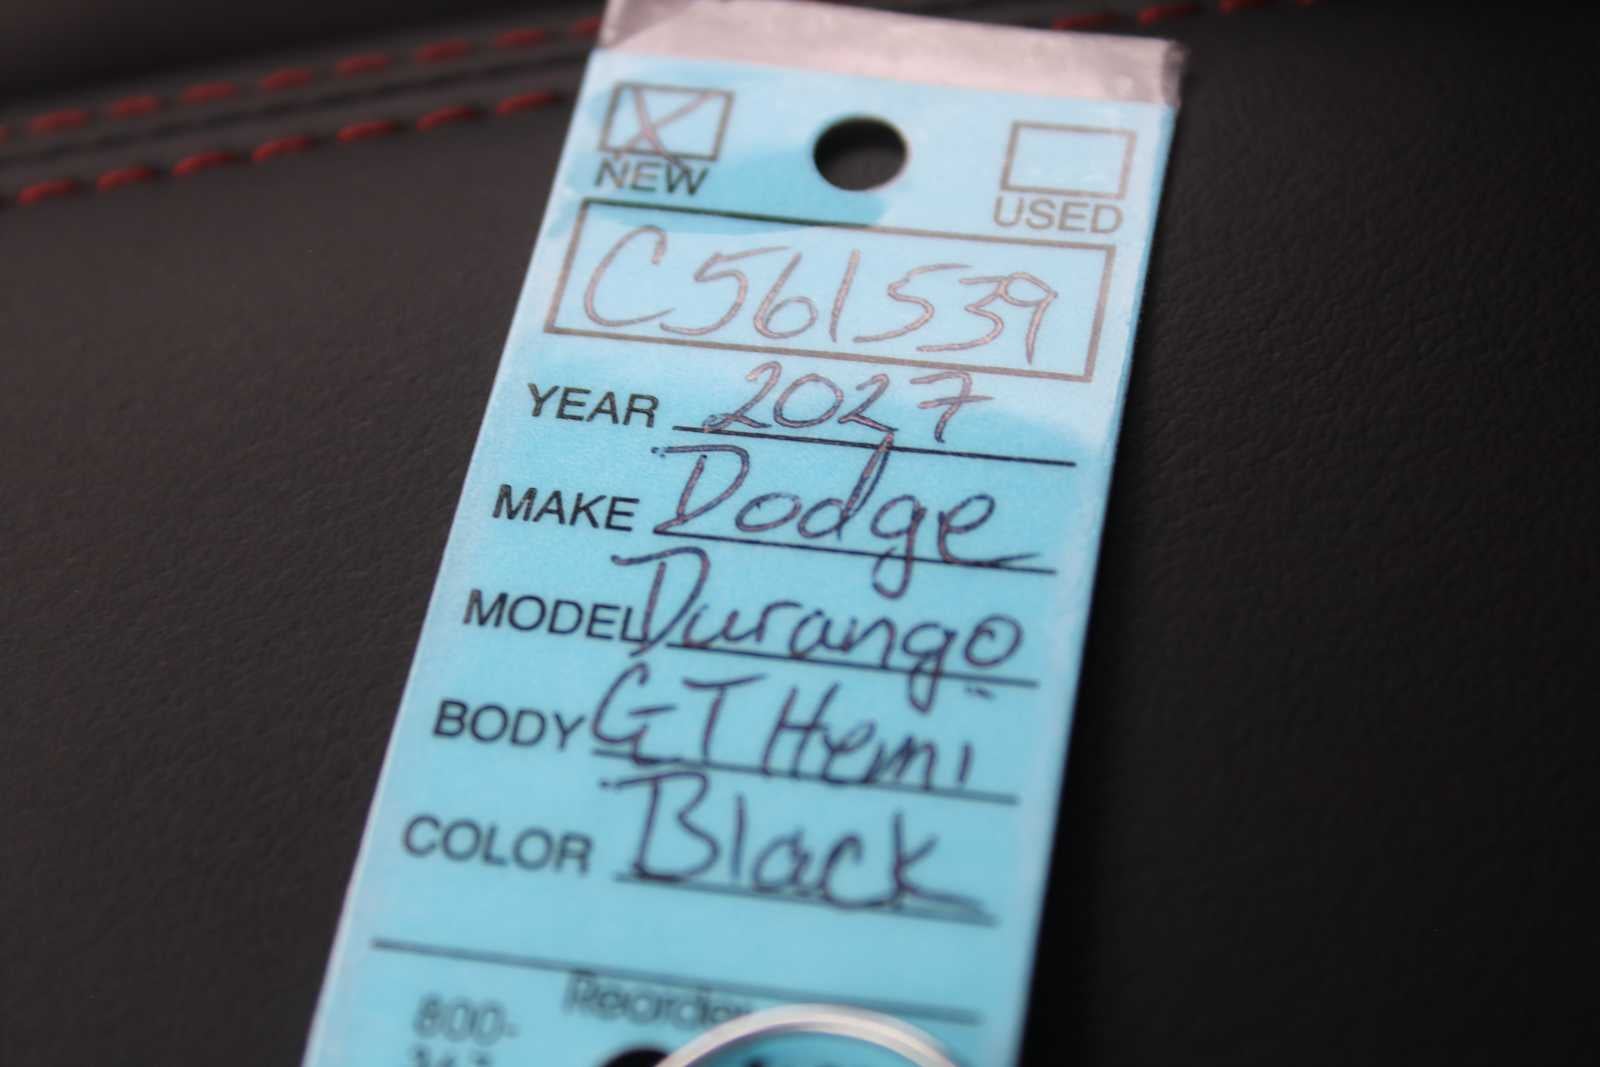 NEW USED
C561539
YEAR 2027
MAKE Dodge
MODEL Durango
BODY GT Hemi
COLOR Black
Reorder
800-